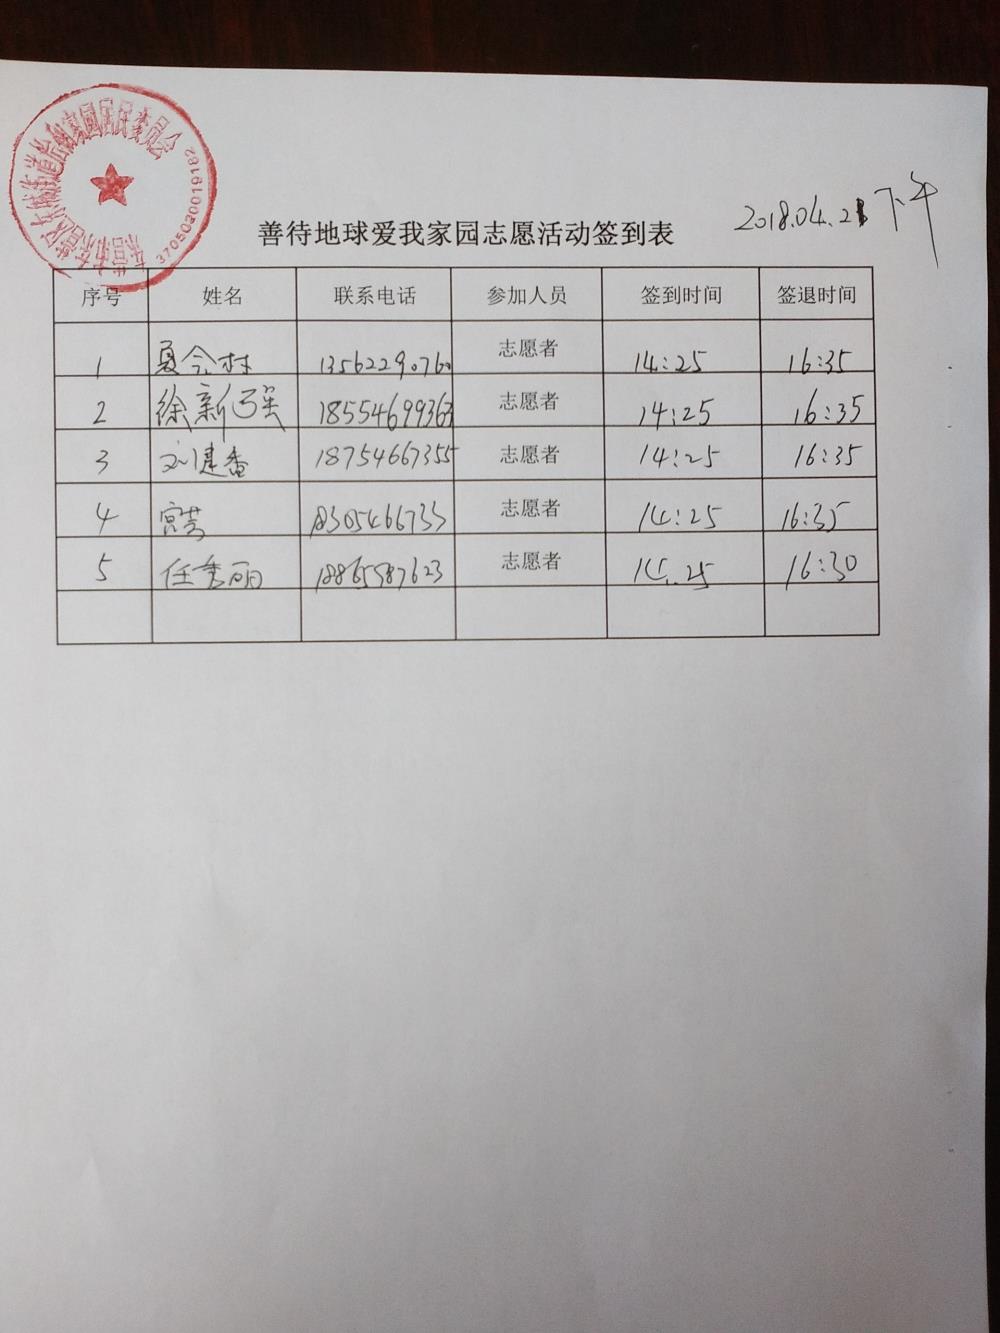 3705020019182
善待地球爱我家园志愿活动签到表
2018.04.21 下午
序号 姓名 联系电话 参加人员 签到时间 签退时间
1 夏会村 13562290760 志愿者 14:25 16:35
2 徐新强 18554699363 志愿者 14:25 16:35
3 刘建香 18754667355 志愿者 14:25 16:35
4 宫芸 18305466733 志愿者 14:25 16:35
5 任秀丽 18865987623 志愿者 14:25 16:30